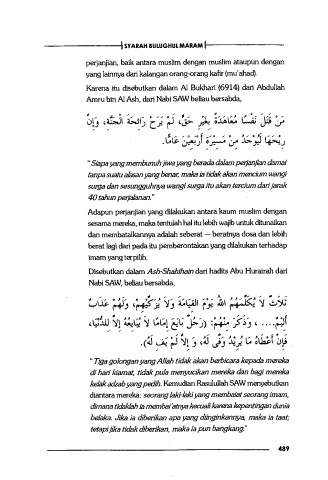 SYARAH BULUGHUL MARAM
perjanjian, baik antara muslim dengan muslim ataupun dengan
yang lainnya dari kalangan orang-orang kafir (mu'ahad).
Karena itu disebutkan dalam Al Bukhari (6914) dari Abdullah
Amru bin Al Ash, dari Nabi SAW beliau bersabda,
مَنْ قَتَلَ نَفْسًا مُعَاهَدَةً بِغَيْرِ حَقٍّ، لَمْ يَرَحْ رَائِحَةَ الْجَنَّةِ، وَإِنَّ
رِيْحَهَا لَيُوْجَدُ مِنْ مَسِيْرَةِ أَرْبَعِيْنَ عَامًا.
"Siapa yang membunuh jiwa yang berada dalam perjanjian damai
tanpa suatu alasan yang benar, maka ia tidak akan mencium wangi
surga dan sesungguhnya wangi surga itu akan tercium dari jarak
40 tahun perjalanan."
Adapun perjanjian yang dilakukan antara kaum muslim dengan
sesama mereka, maka tentulah hal itu lebih wajib untuk ditunaikan
dan membatalkannya adalah seberat — beratnya dosa dan lebih
berat lagi dari pada itu pemberontakan yang dilakukan terhadap
imam yang terpilih.
Disebutkan dalam Ash-Shahihain dari hadits Abu Hurairah dari
Nabi SAW, beliau bersabda,
ثَلَاثٌ لَا يُكَلِّمُهُمُ اللهُ يَوْمَ القِيَامَةِ وَلَا يُزَكِّيْهِمْ، وَلَهُمْ عَذَابٌ
أَلِيْمٌ.... ، وَذَكَرَ مِنْهُمْ: (رَجُلٌ بَايَعَ إِمَامًا لَا يُبَايِعُهُ إِلاَّ لِلدُّنْيَا،
فَإِنْ أَعْطَاهُ مَا يُرِيْدُ وَفَى لَهُ، وَ إِلاَّ لَمْ يَفِ لَهُ).
"Tiga golongan yang Allah tidak akan berbicara kepada mereka
di hari kiamat, tidak pula menyucikan mereka dan bagi mereka
kelak adzab yang pedih. Kemudian Rasulullah SAW menyebutkan
diantara mereka: seorang laki-laki yang membaiat seorang imam,
dimana tidaklah ia membai'atnya kecuali karena kepentingan dunia
belaka. Jika ia diberikan apa yang diinginkannya, maka ia taat;
tetapi jika tidak diberikan, maka ia pun bangkang."
489